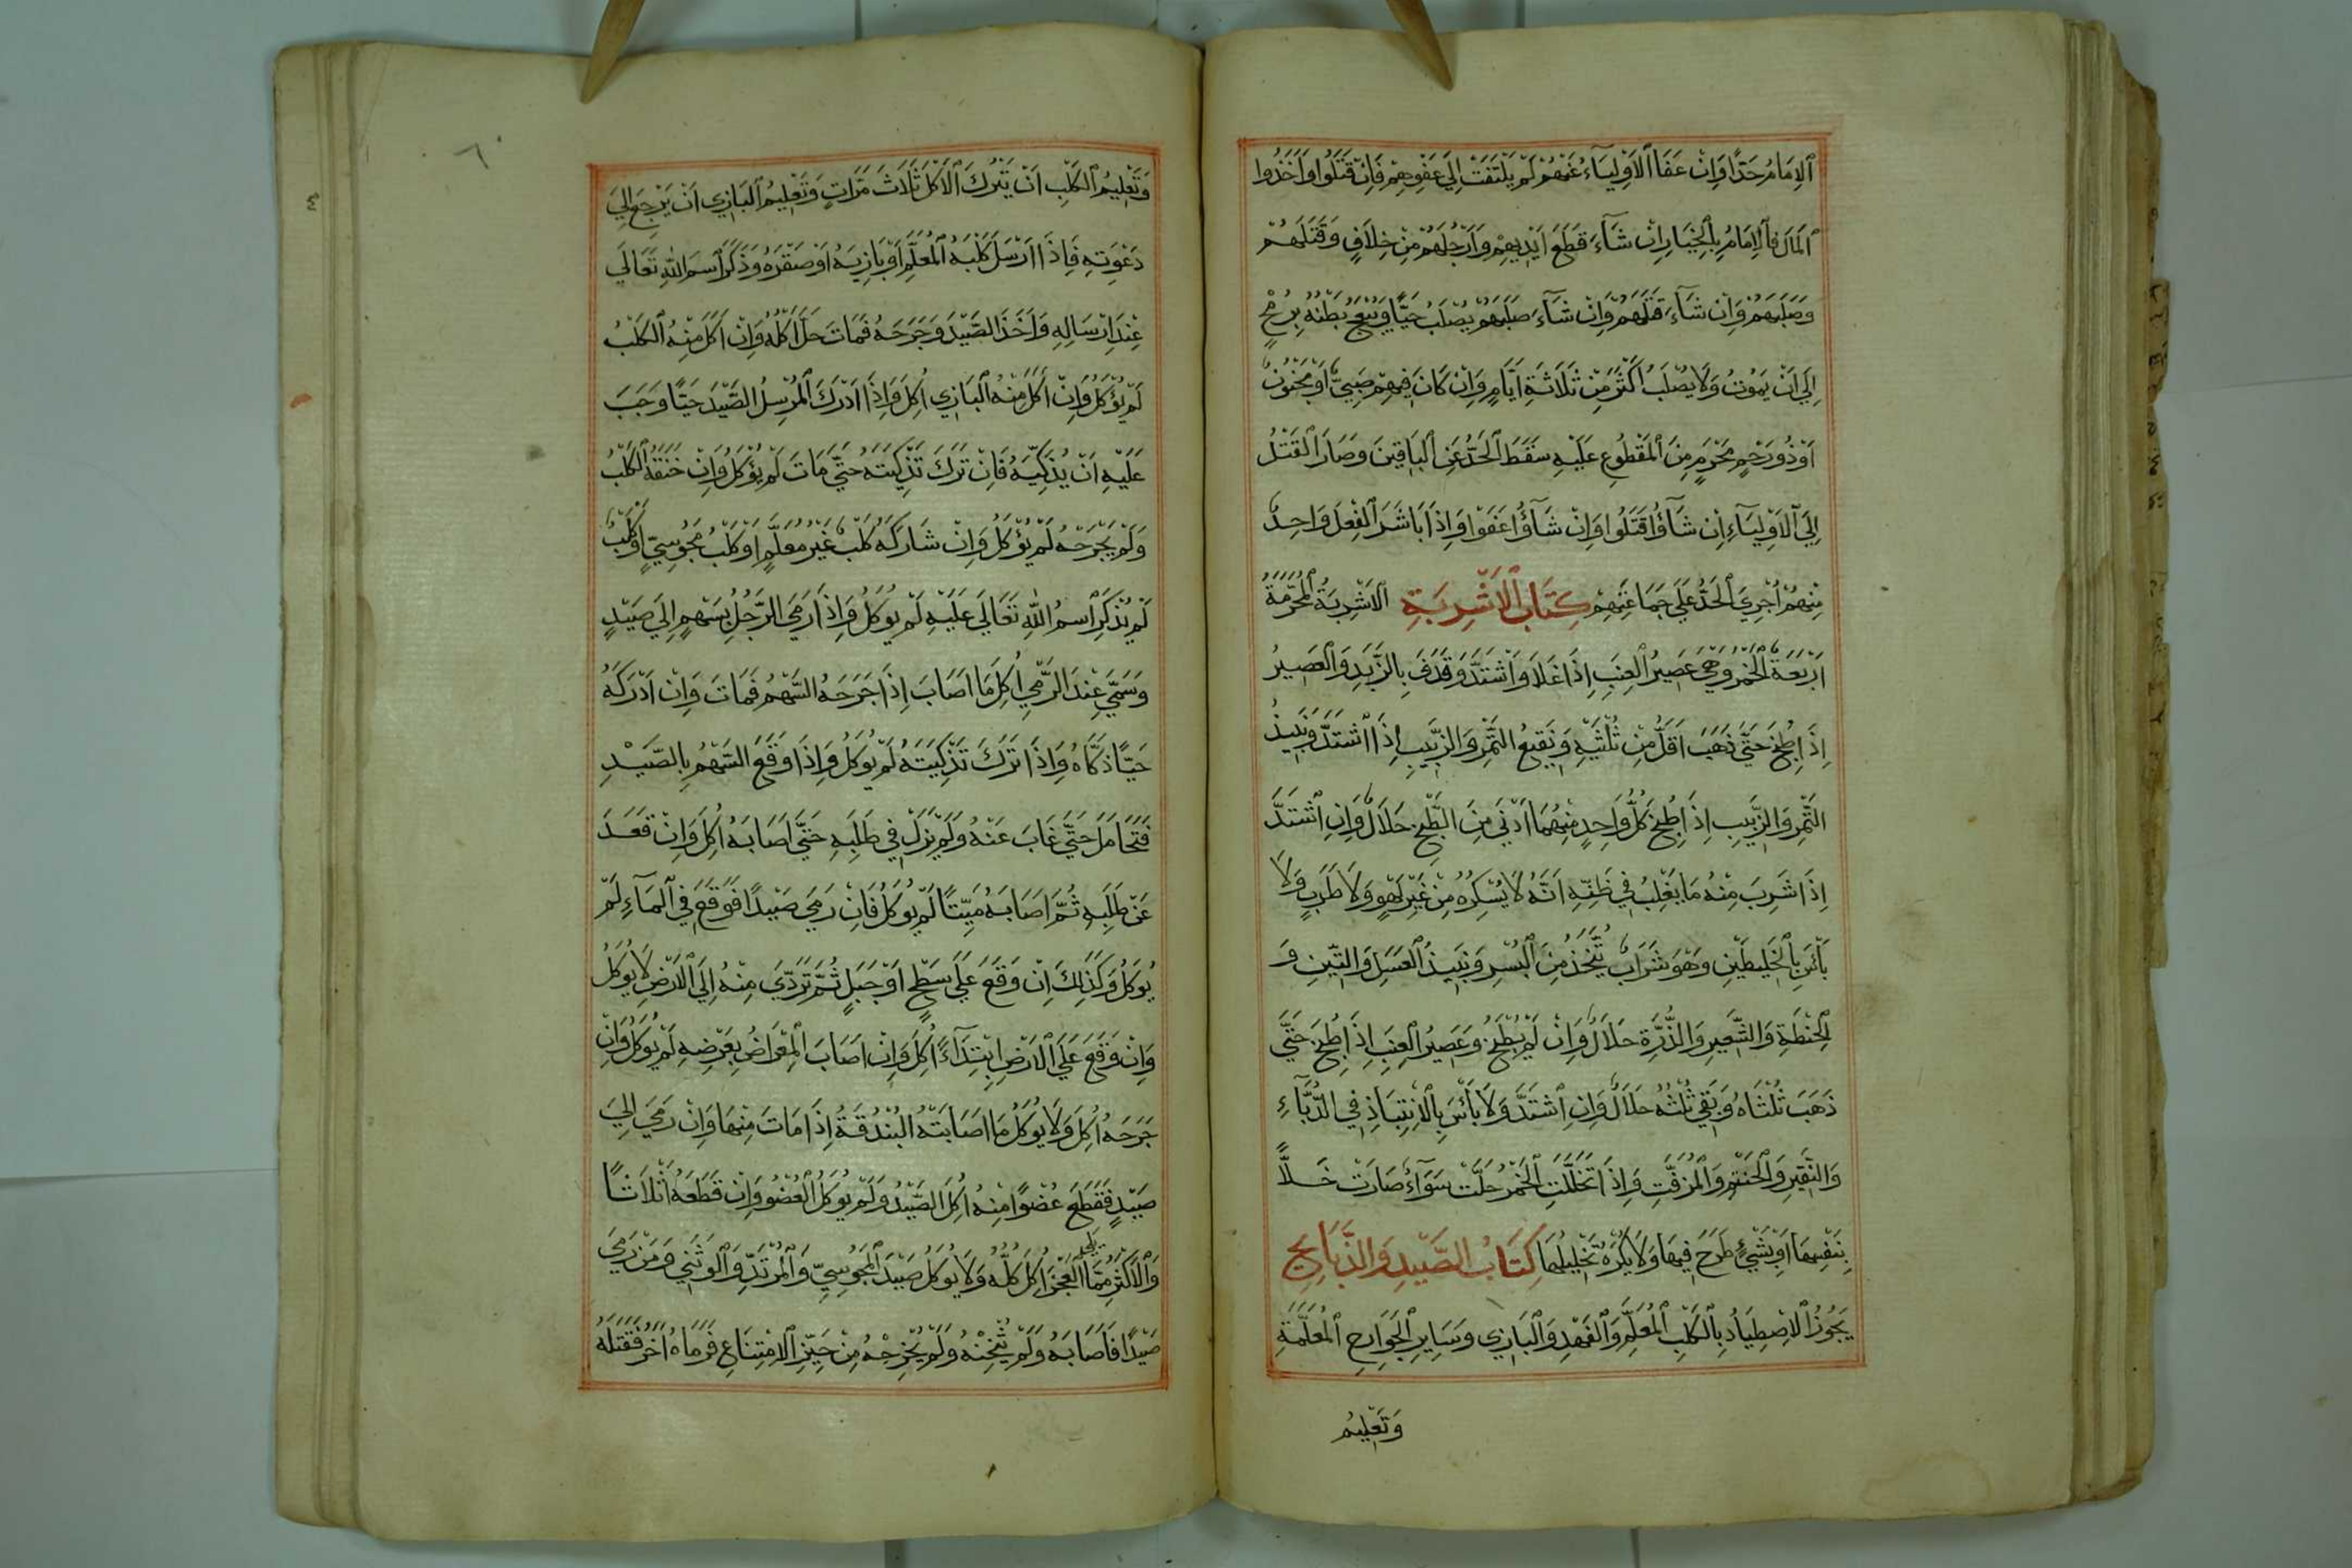 اَلْاِمَامُ حَدًّا وَاِنْ عَفَا الْاَوْلِيَآءُ عَنْهُمْ لَمْ يَلْتَفَتْ اِلَى عَفْوِهِمْ فَاِنْ قَتَلُوا وَاَخَذُوا
اَلْمَالَ فَالْاِمَامُ بِالْخِيَارِ اِنْ شَآءَ قَطَعَ اَيْدِيهِمْ وَاَرْجُلَهُمْ مِنْ خِلَافٍ وَقَتَلَهُمْ
وَصَلَبَهُمْ وَاِنْ شَآءَ قَتَلَهُمْ وَاِنْ شَآءَ صَلَبَهُمْ يُصْلَبُ حَيًّا وَيُبْعَجُ بَطْنُهُ بِرُمْحٍ
اِلَى اَنْ يَمُوتُ وَلَا يُصْلَبُ اَكْثَرَ مِنْ ثَلَاثَةِ اَيَّامٍ وَاِنْ كَانَ فِيهِمْ صَبِيٌّ اَوْ مَجْنُونٌ
اَوْ ذُو رَحِمٍ مَحْرَمٍ مِنَ الْمَقْطُوعِ عَلَيْهِ سَقَطَ الْحَدُّ عَنِ الْبَاقِينَ وَصَارَ الْقَتْلُ
اِلَى الْاَوْلِيَآءِ اِنْ شَآؤُا قَتَلُوا وَاِنْ شَآؤُا عَفَوْا وَاِذَا بَاشَرَ الْفِعْلَ وَاحِدٌ
مِنْهُمْ اُجْرِىَ الْحَدُّ عَلَى جَمَاعَتِهِمْ كِتَابُ الْاَشْرِبَةِ الْاَشْرِبَةُ الْمُحَرَّمَةُ
اَرْبَعَةٌ الْخَمْرُ وَهِىَ عَصِيرُ الْعِنَبِ اِذَا غَلَا وَاشْتَدَّ وَقَذَفَ بِالزَّبَدِ وَالْعَصِيرُ
اِذَا طُبِخَ حَتَّى ذَهَبَ اَقَلُّ مِنْ ثُلْثَيْهِ وَنَقِيعُ التَّمْرِ وَالزَّبِيبِ اِذَا اشْتَدَّ وَنَبِيذُ
التَّمْرِ وَالزَّبِيبِ اِذَا طُبِخَ كُلُّ وَاحِدٍ مِنْهُمَا اَدْنَى مِنَ الطَّبْخِ حَلَالٌ وَاِنِ اشْتَدَّ
اِذَا شَرِبَ مِنْهُ مَا يَغْلِبُ فِى ظَنِّهِ اَنَّهُ لَا يُسْكِرُهُ مِنْ غَيْرِ لَهْوٍ وَلَا طَرَبٍ وَلَا
بَأْسَ بِالْخَلِيطَيْنِ وَهُوَ شَرَابٌ يُتَّخَذُ مِنَ الْبُسْرِ وَنَبِيذُ الْعَسَلِ وَالتِّينِ وَ
الْحِنْطَةِ وَالشَّعِيرِ وَالذُّرَّةِ حَلَالٌ وَاِنْ لَمْ يُطْبَخْ وَعَصِيرُ الْعِنَبِ اِذَا طُبِخَ حَتَّى
ذَهَبَ ثُلْثَاهُ وَبَقِىَ ثُلْثُهُ حَلَالٌ وَاِنِ اشْتَدَّ وَلَا بَأْسَ بِالْاِنْتِبَاذِ فِى الدُّبَّاءِ
وَالنَّقِيرِ وَالْحَنْتَمِ وَالْمُزَفَّتِ وَاِذَا تَخَلَّلَتِ الْخَمْرُ حَلَّتْ سَوَآءٌ صَارَتْ خَلًّا
بِنَفْسِهَا اَوْ بِشَيْءٍ طَرَحَ فِيهَا وَلَا يُكْرَهُ تَخْلِيلُهَا كِتَابُ الصَّيْدِ وَالذَّبَايِحِ
يَجُوزُ الْاِصْطِيَادُ بِالْكَلْبِ الْمُعَلَّمِ وَالْفَهْدِ وَالْبَازِى وَسَايِرِ الْجَوَارِحِ الْمُعَلَّمَةِ
وَتَعْلِيمُ
٦٠
وَتَعْلِيمُ الْكَلْبِ اَنْ يَتْرُكَ الْاَكْلَ ثَلَاثَ مَرَّاتٍ وَتَعْلِيمُ الْبَازِى اَنْ يَرْجِعَ اِلَى
دَعْوَتِهِ فَاِذَا اَرْسَلَ كَلْبَهُ الْمُعَلَّمَ اَوْ بَازِيَهُ اَوْ صَقْرَهُ وَذَكَرَ اسْمَ اللّٰهِ تَعَالَى
عِنْدَ اِرْسَالِهِ وَاَخَذَ الصَّيْدَ وَجَرَحَهُ فَمَاتَ حَلَّ اَكْلُهُ وَاِنْ اَكَلَ مِنْهُ الْكَلْبُ
لَمْ يُؤْكَلُ وَاِنْ اَكَلَ مِنْهُ الْبَازِى اُكِلَ وَاِذَا اَدْرَكَ الْمُرْسِلُ الصَّيْدَ حَيًّا وَجَبَ
عَلَيْهِ اَنْ يُذَكِّيَهُ فَاِنْ تَرَكَ تَذْكِيَتَهُ حَتَّى مَاتَ لَمْ يُؤْكَلُ وَاِنْ خَنَقَهُ الْكَلْبُ
وَلَمْ يَجْرَحْهُ لَمْ يُؤْكَلُ وَاِنْ شَارَكَهُ كَلْبٌ غَيْرُ مُعَلَّمٍ اَوْ كَلْبُ مَجُوسِيٍّ اَوْ كَلْبٌ
لَمْ يُذْكَرِ اسْمُ اللّٰهِ تَعَالَى عَلَيْهِ لَمْ يُوكَلُ وَاِذَا رَمَى الرَّجُلُ بِسَهْمٍ اِلَى صَيْدٍ
وَسَمَّى عِنْدَ الرَّمْىِ اُكِلَ مَا اَصَابَ اِذَا جَرَحَهُ السَّهْمُ فَمَاتَ وَاِنْ اَدْرَكَهُ
حَيًّا ذَكَّاهُ وَاِذَا تَرَكَ تَذْكِيَتَهُ لَمْ يُوكَلُ وَاِذَا وَقَعَ السَّهْمُ بِالصَّيْدِ
فَتَحَامَلَ حَتَّى غَابَ عَنْهُ وَلَمْ يَزَلْ فِى طَلَبِهِ حَتَّى اَصَابَهُ اُكِلَ وَاِنْ قَعَدَ
عَنْ طَلَبِهِ ثُمَّ اَصَابَهُ مَيِّتًا لَمْ يُوكَلُ فَاِنْ رَمَى صَيْدًا فَوَقَعَ فِى الْمَآءِ لَمْ
يُوكَلُ وَكَذَلِكَ اِنْ وَقَعَ عَلَى سَطْحٍ اَوْ جَبَلٍ ثُمَّ تَرَدَّى مِنْهُ اِلَى الْاَرْضِ لَا يُوكَلُ
وَاِنْ وَقَعَ عَلَى الْاَرْضِ اِبْتِدَآءً اُكِلَ وَاِنْ اَصَابَ الْمِعْرَاضُ بِعَرْضِهِ لَمْ يُوكَلُ وَاِنْ
جَرَحَهُ اُكِلَ وَلَا يُوكَلُ مَا اَصَابَتْهُ الْبُنْدُقَةُ اِذَا مَاتَ مِنْهَا وَاِنْ رَمَى اِلَى
صَيْدٍ فَقَطَعَ عُضْوًا مِنْهُ اُكِلَ الصَّيْدُ وَلَمْ يُوكَلُ الْعُضْوُ وَاِنْ قَطَعَهُ اَثْلَاثًا
وَالْاَكْثَرُ مِمَّا يلى الْعَجُزَ اُكِلَ كُلُّهُ وَلَا يُوكَلُ صَيْدَ الْمَجُوسِيِّ وَالْمُرْتَدِّ وَالْوَثَنِى وَمَنْ رَمَى
صَيْدًا فَاَصَابَهُ وَلَمْ يُثْخِنْهُ وَلَمْ يُخْرِجْهُ مِنْ حَيِّزِ الْاِمْتِنَاعِ فَرَمَاهُ اَخَرُ فَقَتَلَهُ